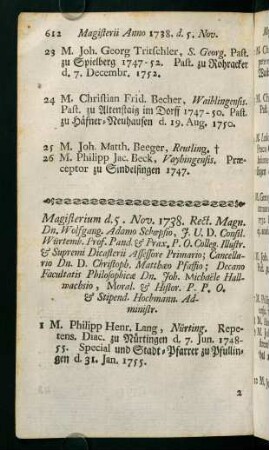 612 Magisterii Anno 1738. d. 5. Nov.
23 M. Joh. Georg Tritschler, S. Georg. Past.
zu Spielberg 1747-52. Past. zu Rohracker
d. 7. Decembr. 1752.
24 M. Christian Frid. Becher, Waiblingensis.
Past. zu Altenstaig im Dorff 1747-50. Past.
zu Häfner-Neuhausen d. 19. Aug. 1750.
25 M. Joh. Matth. Beeger, Reutling. †
26 M. Philipp Jac. Beck, Vayhingensis. Præ-
ceptor zu Sindelfingen 1747.
Magisterium d. 5. Nov. 1738. Rect. Magn.
Dn. Wolfgang. Adamo Schœpfio, J. U. D. Consil.
Würtemb. Prof. Pand. & Prax. P. O. Colleg. Illustr.
& Supremi Dicasterii Assessore Primario; Cancella-
rio Dn. D. Christoph. Matthæo Pfaffio; Decano
Facultatis Philosophicæ Dn. Joh. Michaële Hall-
wachsio, Moral. & Histor. P. P. O.
& Stipend. Hochmann. Ad-
ministr.
1 M. Philipp Henr. Lang, Nürting. Repe-
tens. Diac. zu Nürtingen d. 7. Jun. 1748-
55. Special und Stadt-Pfarrer zu Pfullin-
gen d. 31. Jan. 1755.
2